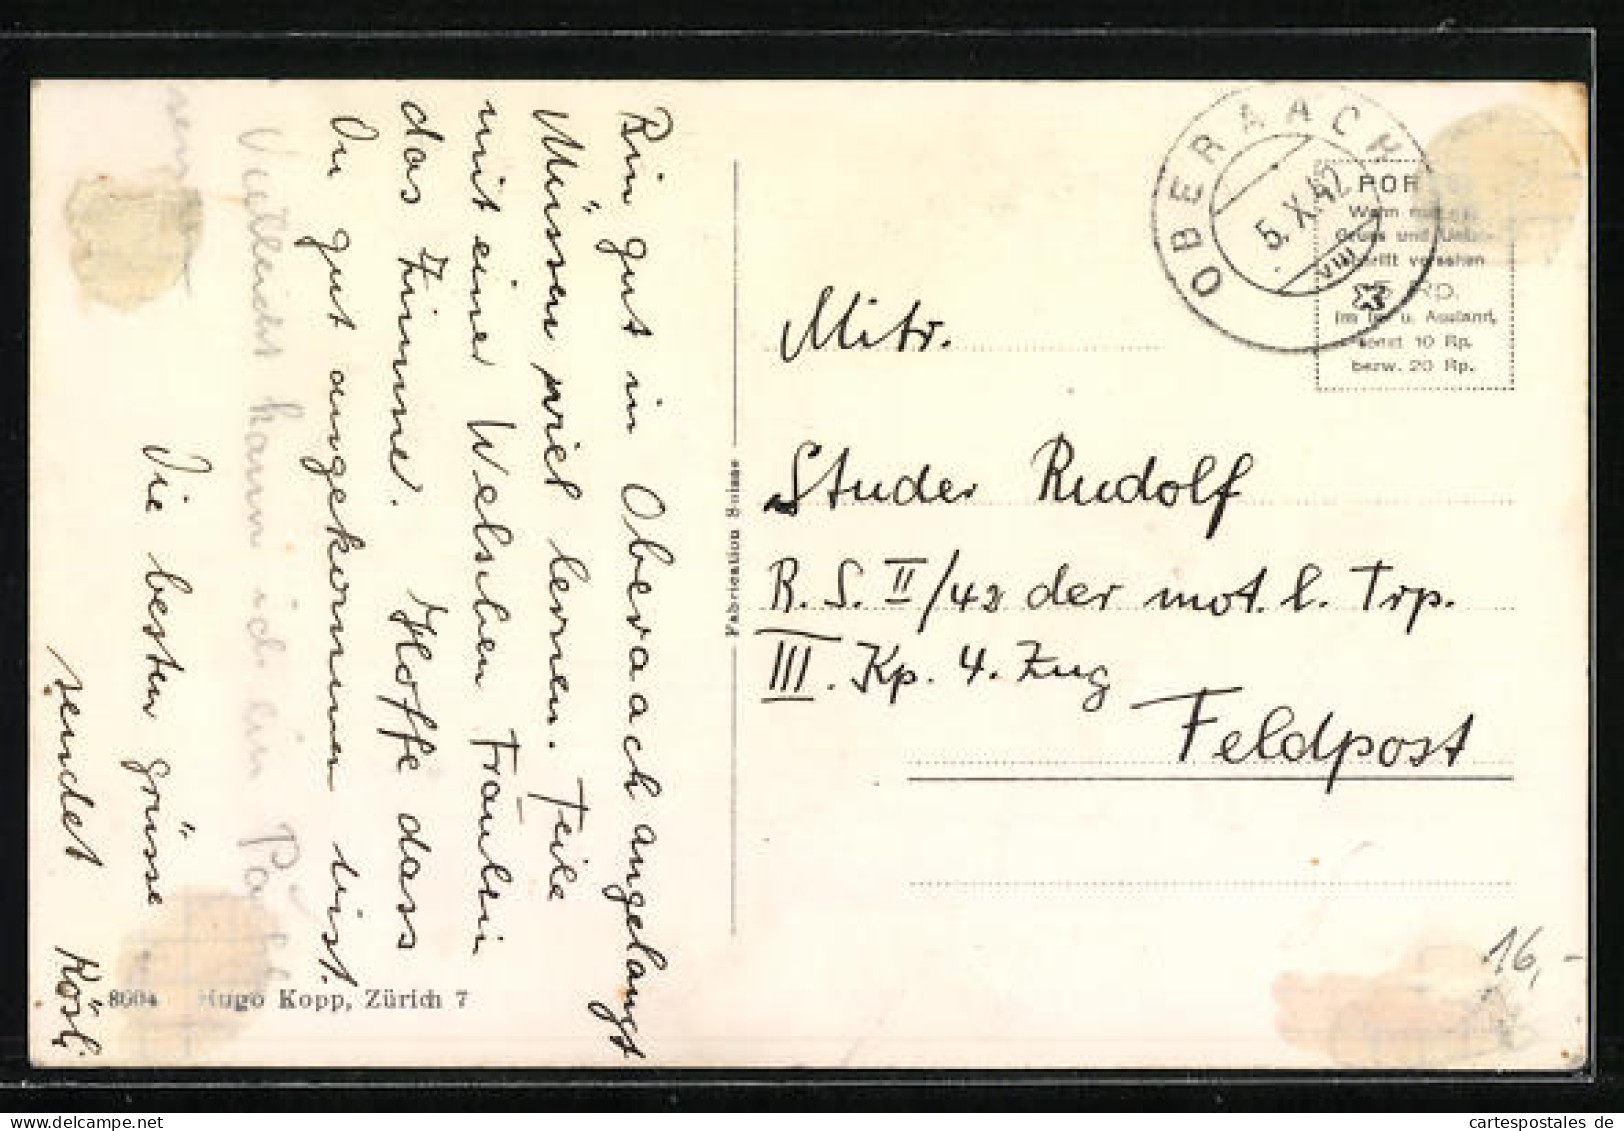 Bin gut in Oberaach angelangt
Müssen viel lernen. Teile
mit einer Welschen Fräulein
das Zimmer. Hoffe dass
Du gut angekommen bist.
Vielleicht kann ich ein
Die besten grüsse
sendet Rösli
8004 Hugo Kopp, Zürich 7
Fabrication Suisse
OBERAACH
5.X.42
VIII
POR
Wenn mit
Gruss und Unter-
schrift versehen
RP.
im In- u. Ausland,
sonst 10 Rp.
bezw. 20 Rp.
Mitr.
Studer Rudolf
R. S. II/42 der mot. l. Trp.
III. Kp. 4. Zug
Feldpost
16,-
cartespostales de